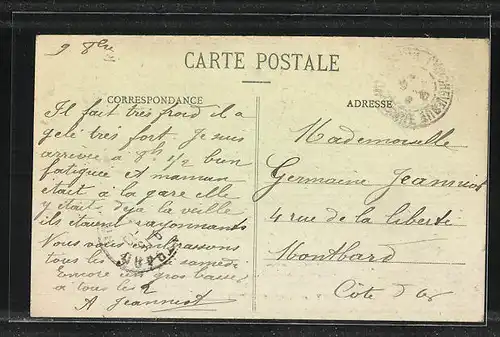 9 8bre
CARTE POSTALE
CORRESPONDANCE
Il fait très froid il a
gelé très fort. Je suis
arrivée à 9h 1/2 bien
fatiguée A maman
était à la gare elle
y était déjà la veille
ils étaient rayonnants
Nous vous embrassons
tous les samedi
Encore un gros baiser
à tous les 2
A Jeanniot
ADRESSE
Mademoiselle
Germaine Jeanniot
4 rue de la liberté
Montbard
Côte d'Or